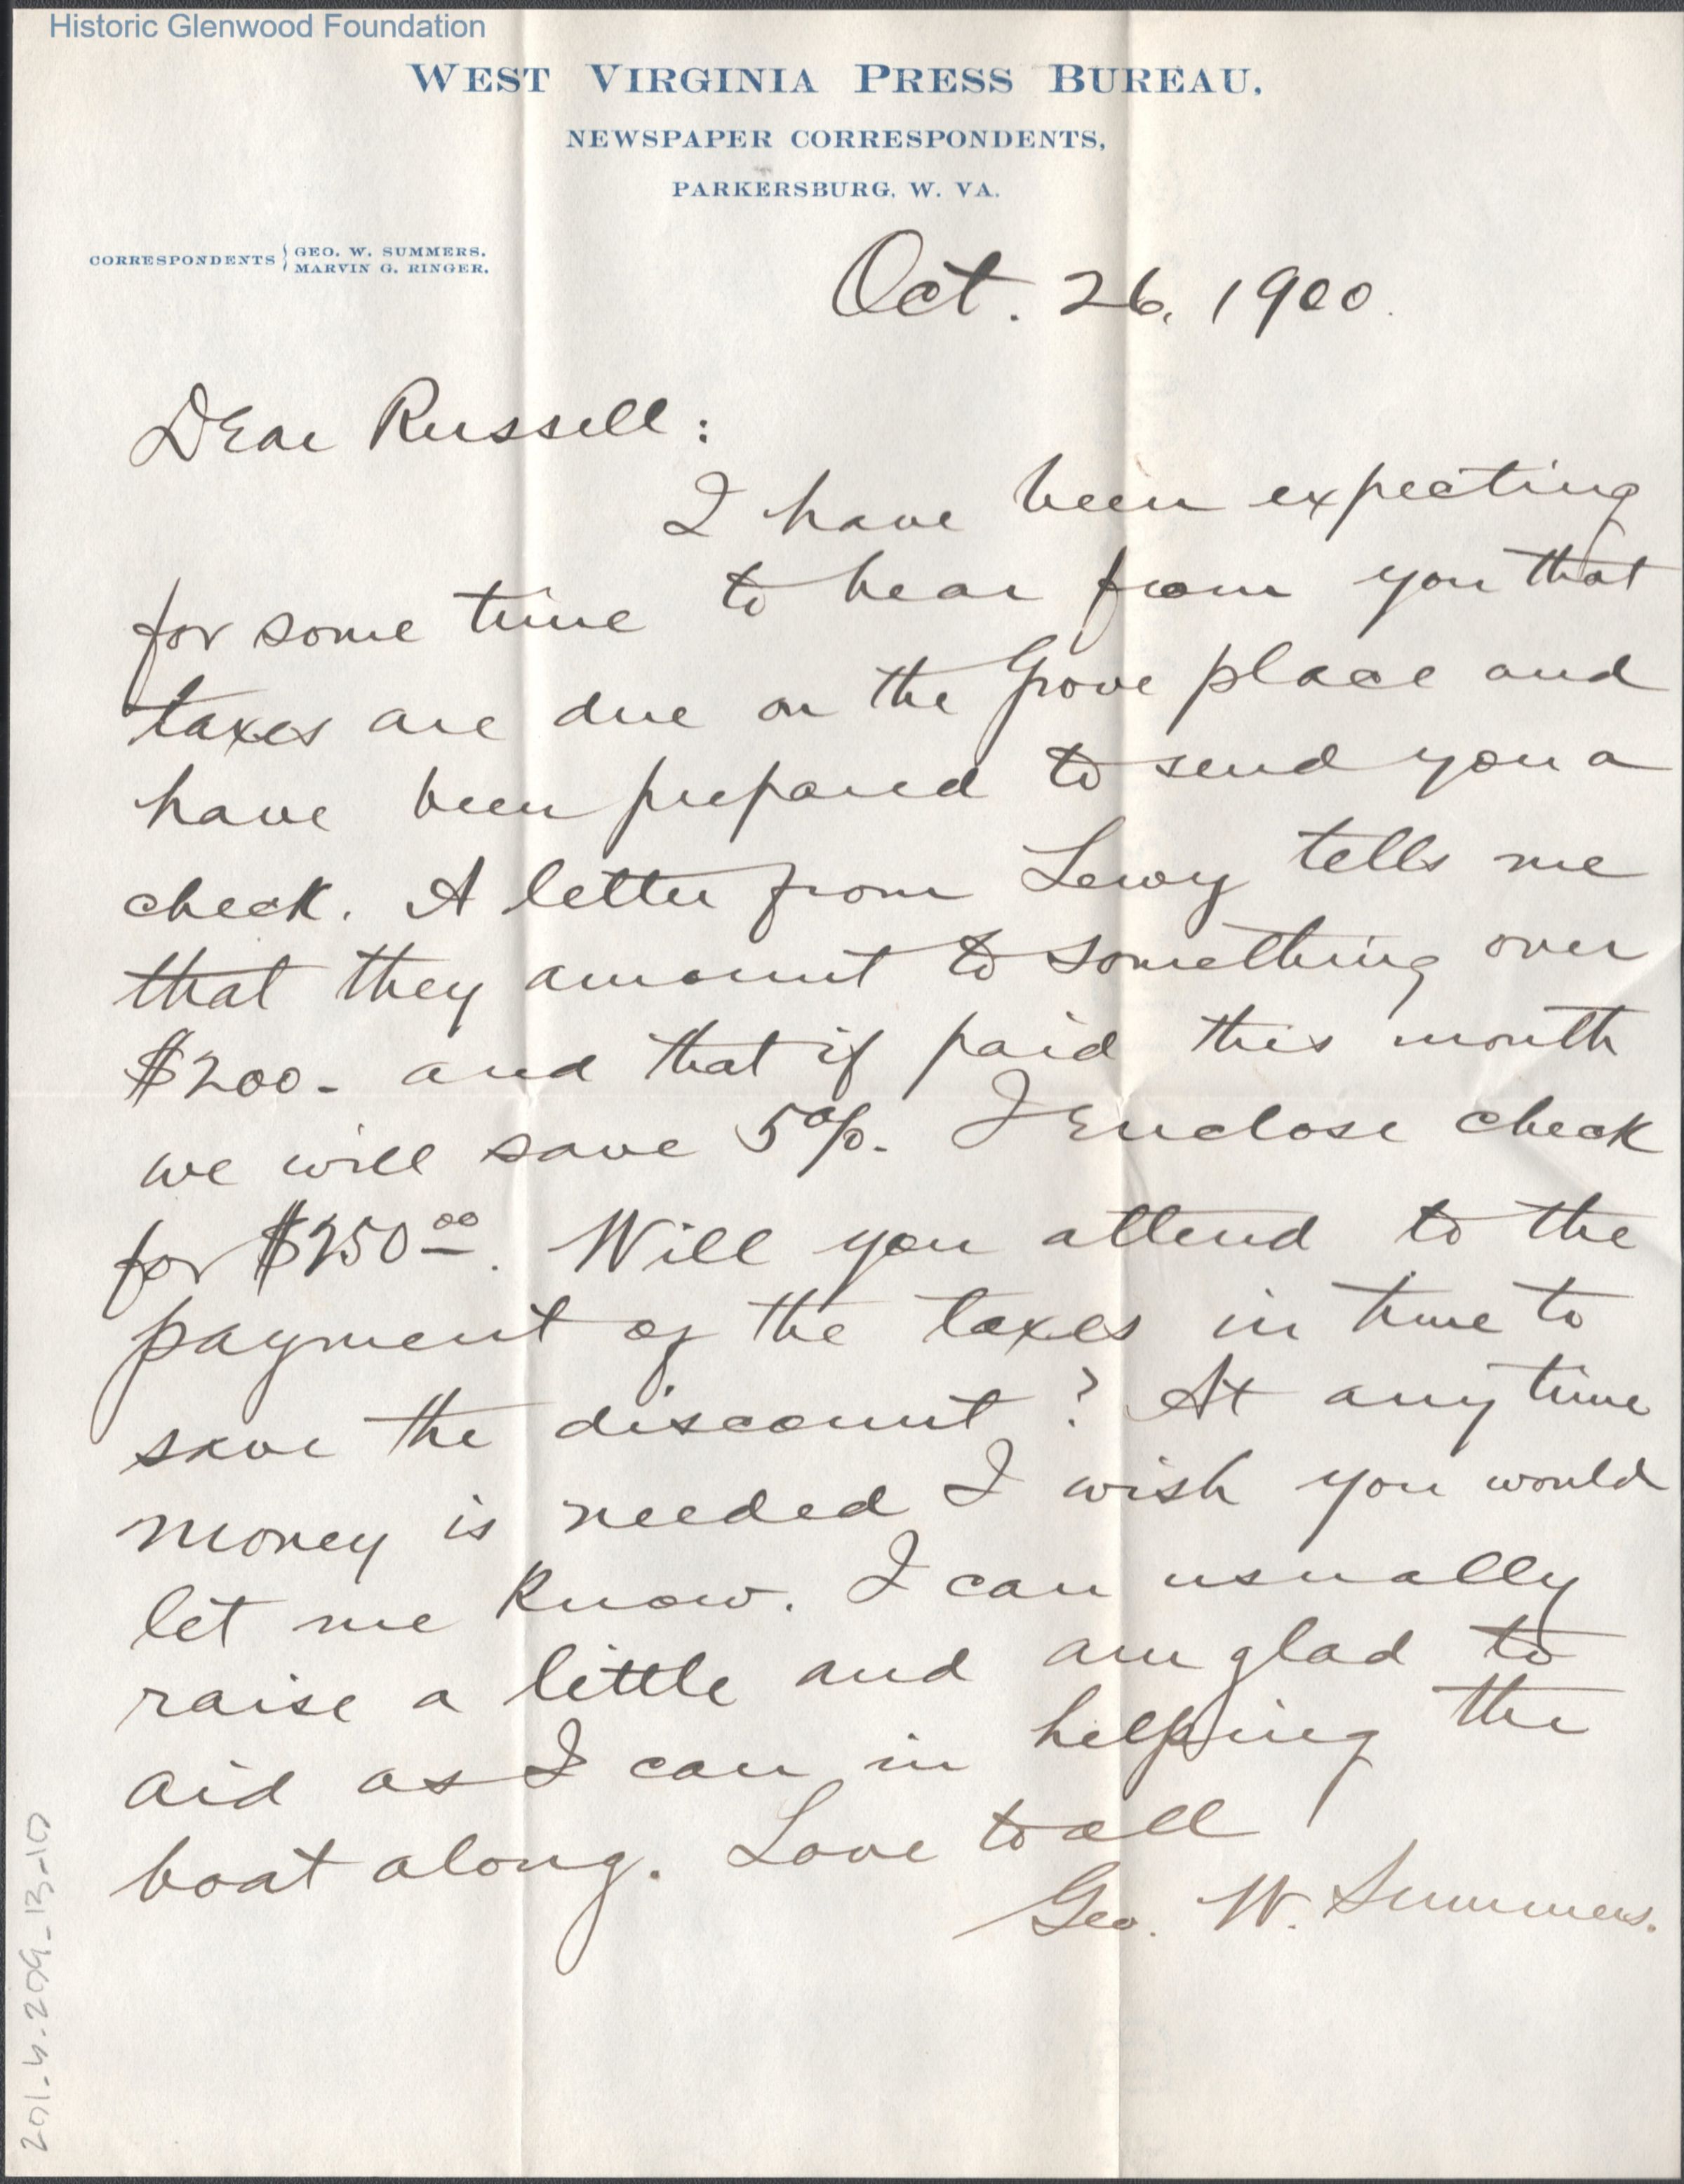 Historic Glenwood Foundation
WEST VIRGINIA PRESS BUREAU.
NEWSPAPER CORRESPONDENTS,
PARKERSBURG, W. VA.
CORRESPONDENTS { GEO. W. SUMMERS.
MARVIN G. RINGER.
Oct. 26, 1900.
Dear Russell:
I have been expecting
for some time to hear from you that
taxes are due on the Grove place and
have been prepared to send you a
check. A letter from Lewy tells me
that they amount to something over
$200- and that if paid this month
we will save 5%. I Enclose check
for $250 00. Will you attend to the
payment of the taxes in time to
save the discount? At any time
money is needed I wish you would
let me know. I can usually
raise a little and am glad to
aid as I can in helping the
boat along. Love to all
Geo. W. Summers.
201-4-209-13-10